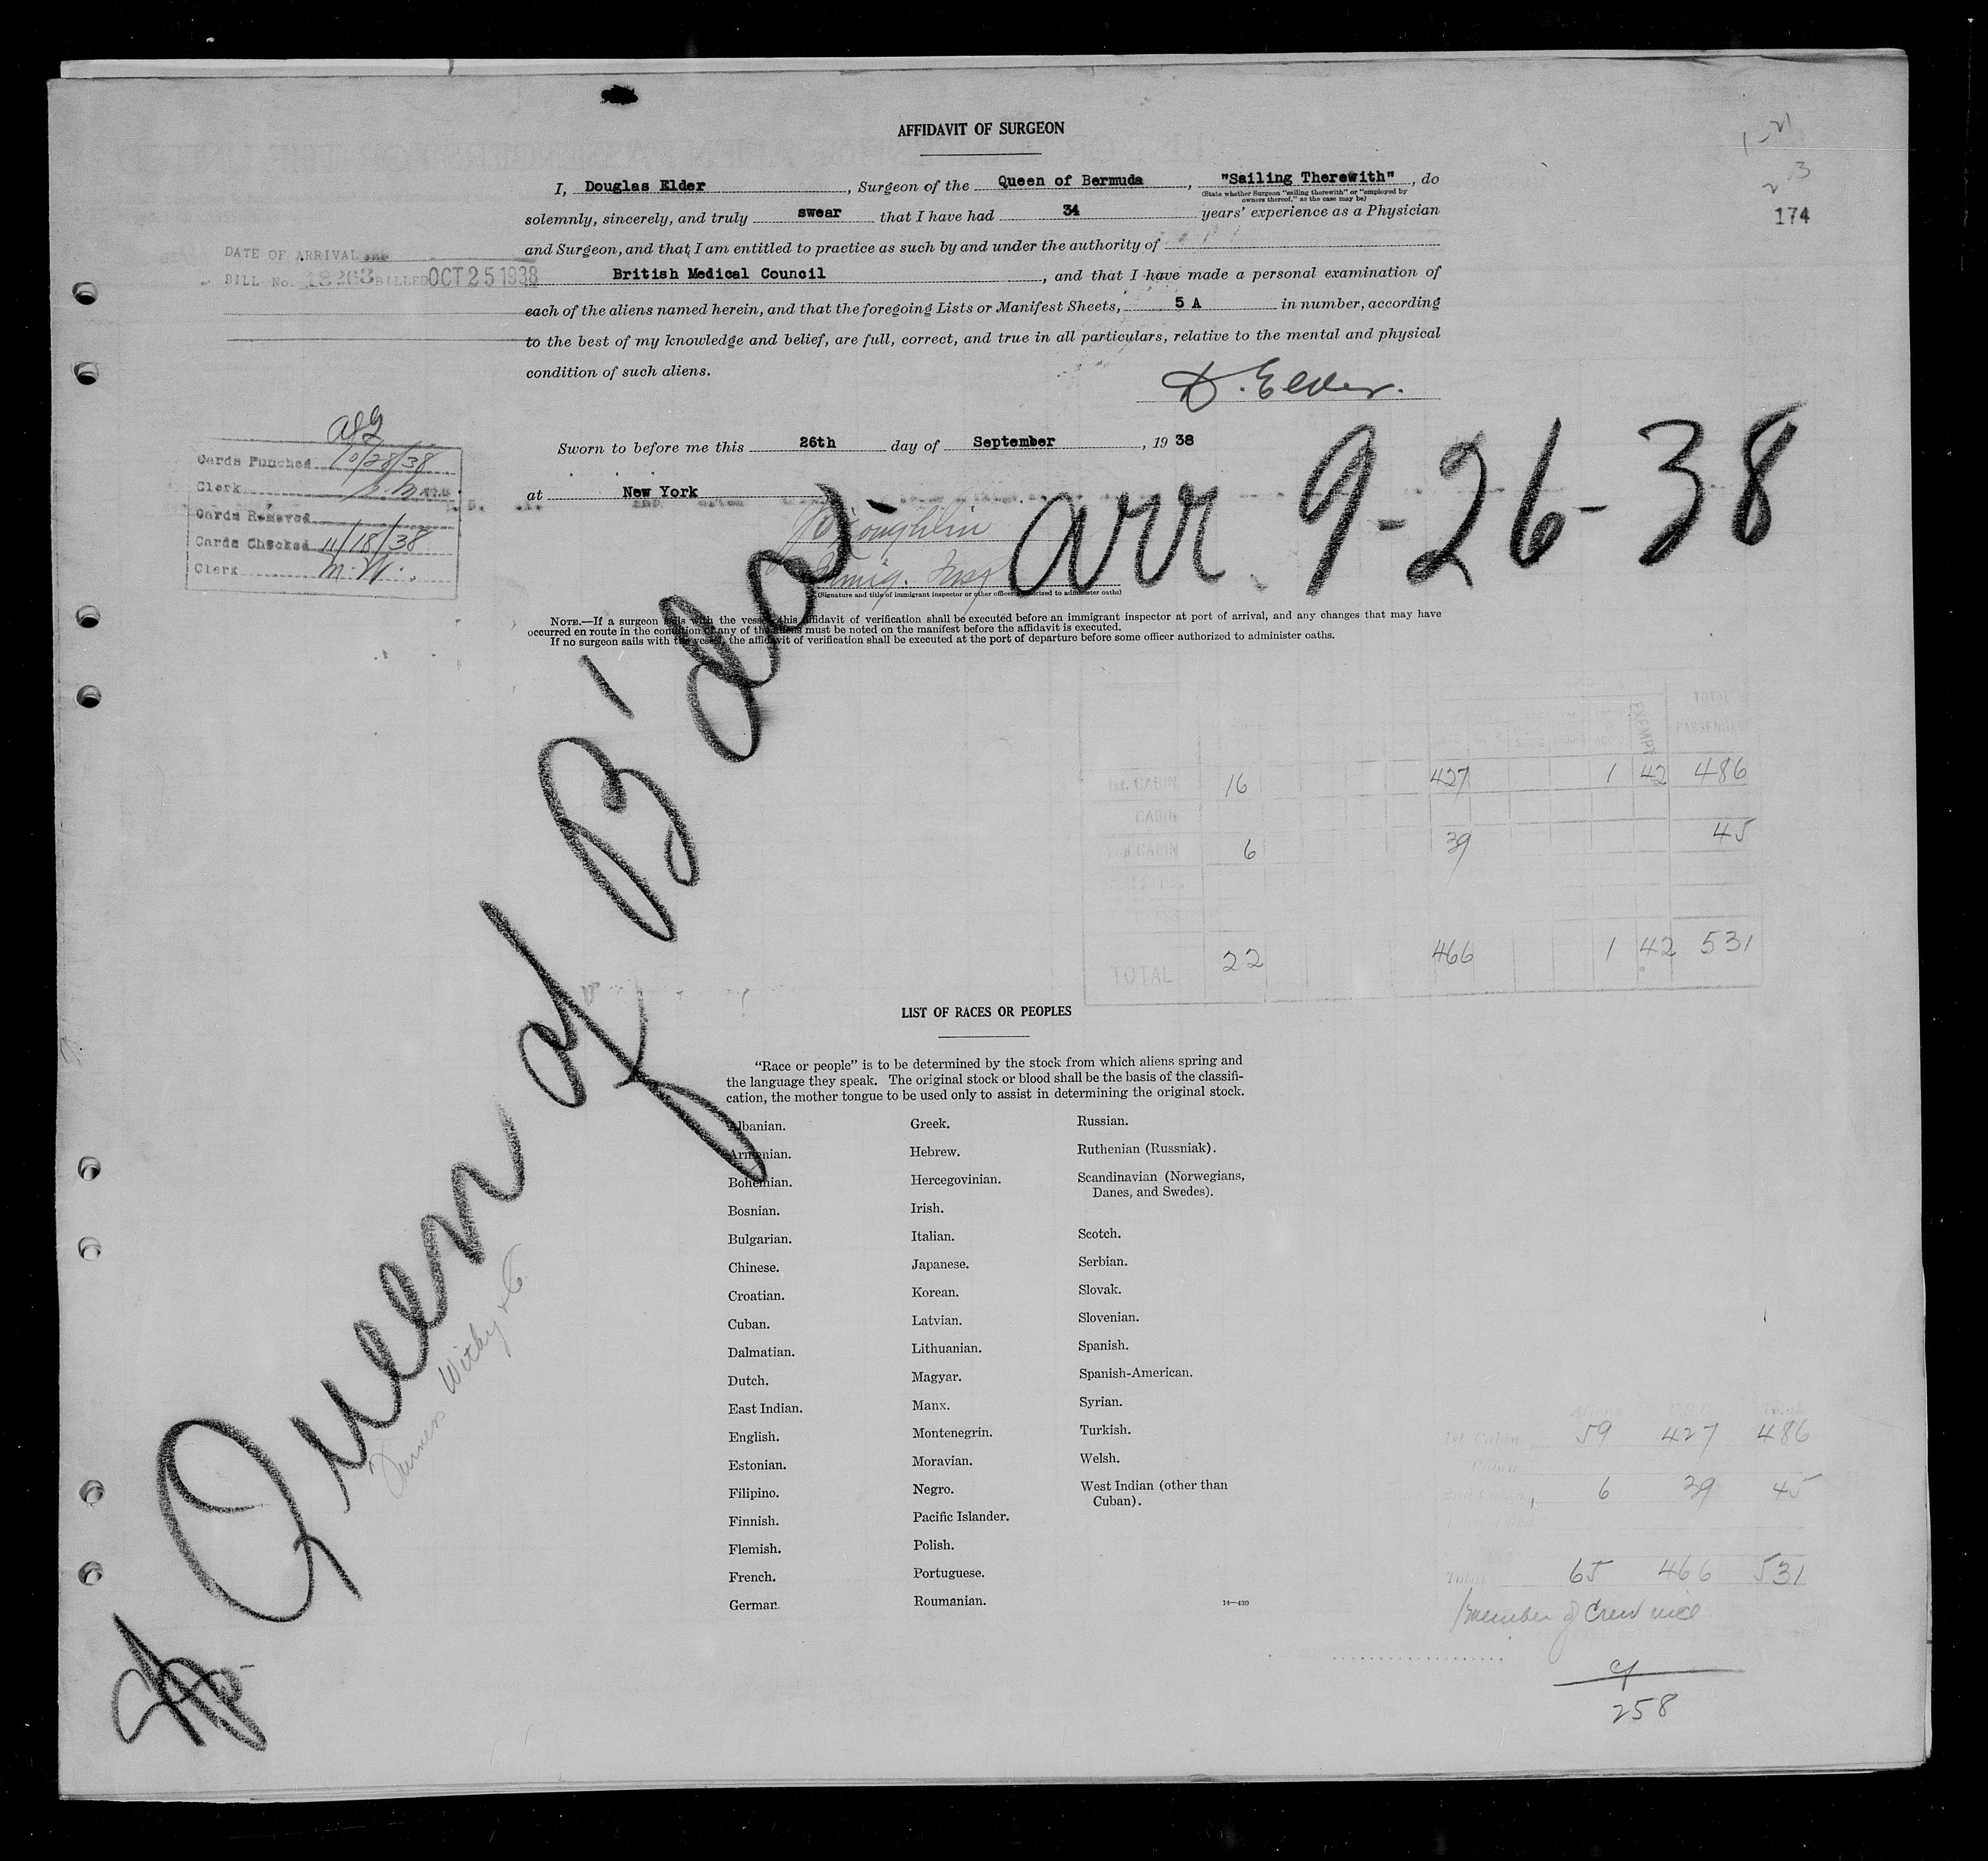 AFFIDAVIT OF SURGEON
I, Douglas Elder, Surgeon of the Queen of Bermuda, "Sailing Therewith", do
(State whether Surgeon "sailing therewith" or "employed by
owners thereof," as the case may be)
solemnly, sincerely, and truly swear that I have had 34 years' experience as a Physician
and Surgeon, and that I am entitled to practice as such by and under the authority of
British Medical Council, and that I have made a personal examination of
each of the aliens named herein, and that the foregoing Lists or Manifest Sheets, 5 A in number, according
to the best of my knowledge and belief, are full, correct, and true in all particulars, relative to the mental and physical
condition of such aliens.
D. Elder.
Sworn to before me this 26th day of September, 19 38
at New York
Immig. Insp
(Signature and title of immigrant inspector or other officer authorized to administer oaths)
NOTE.—If a surgeon sails with the vessel, this affidavit of verification shall be executed before an immigrant inspector at port of arrival, and any changes that may have
occurred en route in the condition of any of the aliens must be noted on the manifest before the affidavit is executed.
If no surgeon sails with the vessel, the affidavit of verification shall be executed at the port of departure before some officer authorized to administer oaths.
174
DATE OF ARRIVAL
BILL No. 18263 BILLED OCT 25 1938
Cards Punched 10/28/38
Clerk
Cards Removed
Cards Checked 11/18/38
Clerk M.W.
arr. 9-26-38
Queen of B'da
Furness Withy & Co
EXEMPT TOTAL PASSENGERS
1st. CABIN 16 427 1 42 486
CABIN
2nd CABIN 6 39 45
TOTAL 22 466 1 42 531
LIST OF RACES OR PEOPLES
"Race or people" is to be determined by the stock from which aliens spring and
the language they speak. The original stock or blood shall be the basis of the classifi-
cation, the mother tongue to be used only to assist in determining the original stock.
Albanian.
Armenian.
Bohemian.
Bosnian.
Bulgarian.
Chinese.
Croatian.
Cuban.
Dalmatian.
Dutch.
East Indian.
English.
Estonian.
Filipino.
Finnish.
Flemish.
French.
German.
Greek.
Hebrew.
Hercegovinian.
Irish.
Italian.
Japanese.
Korean.
Latvian.
Lithuanian.
Magyar.
Manx.
Montenegrin.
Moravian.
Negro.
Pacific Islander.
Polish.
Portuguese.
Roumanian.
Russian.
Ruthenian (Russniak).
Scandinavian (Norwegians,
Danes, and Swedes).
Scotch.
Serbian.
Slovak.
Slovenian.
Spanish.
Spanish-American.
Syrian.
Turkish.
Welsh.
West Indian (other than
Cuban).
14—430
1st Cabin 59 427 486
6 39 45
Total 65 466 531
1 member of Crew incl
258